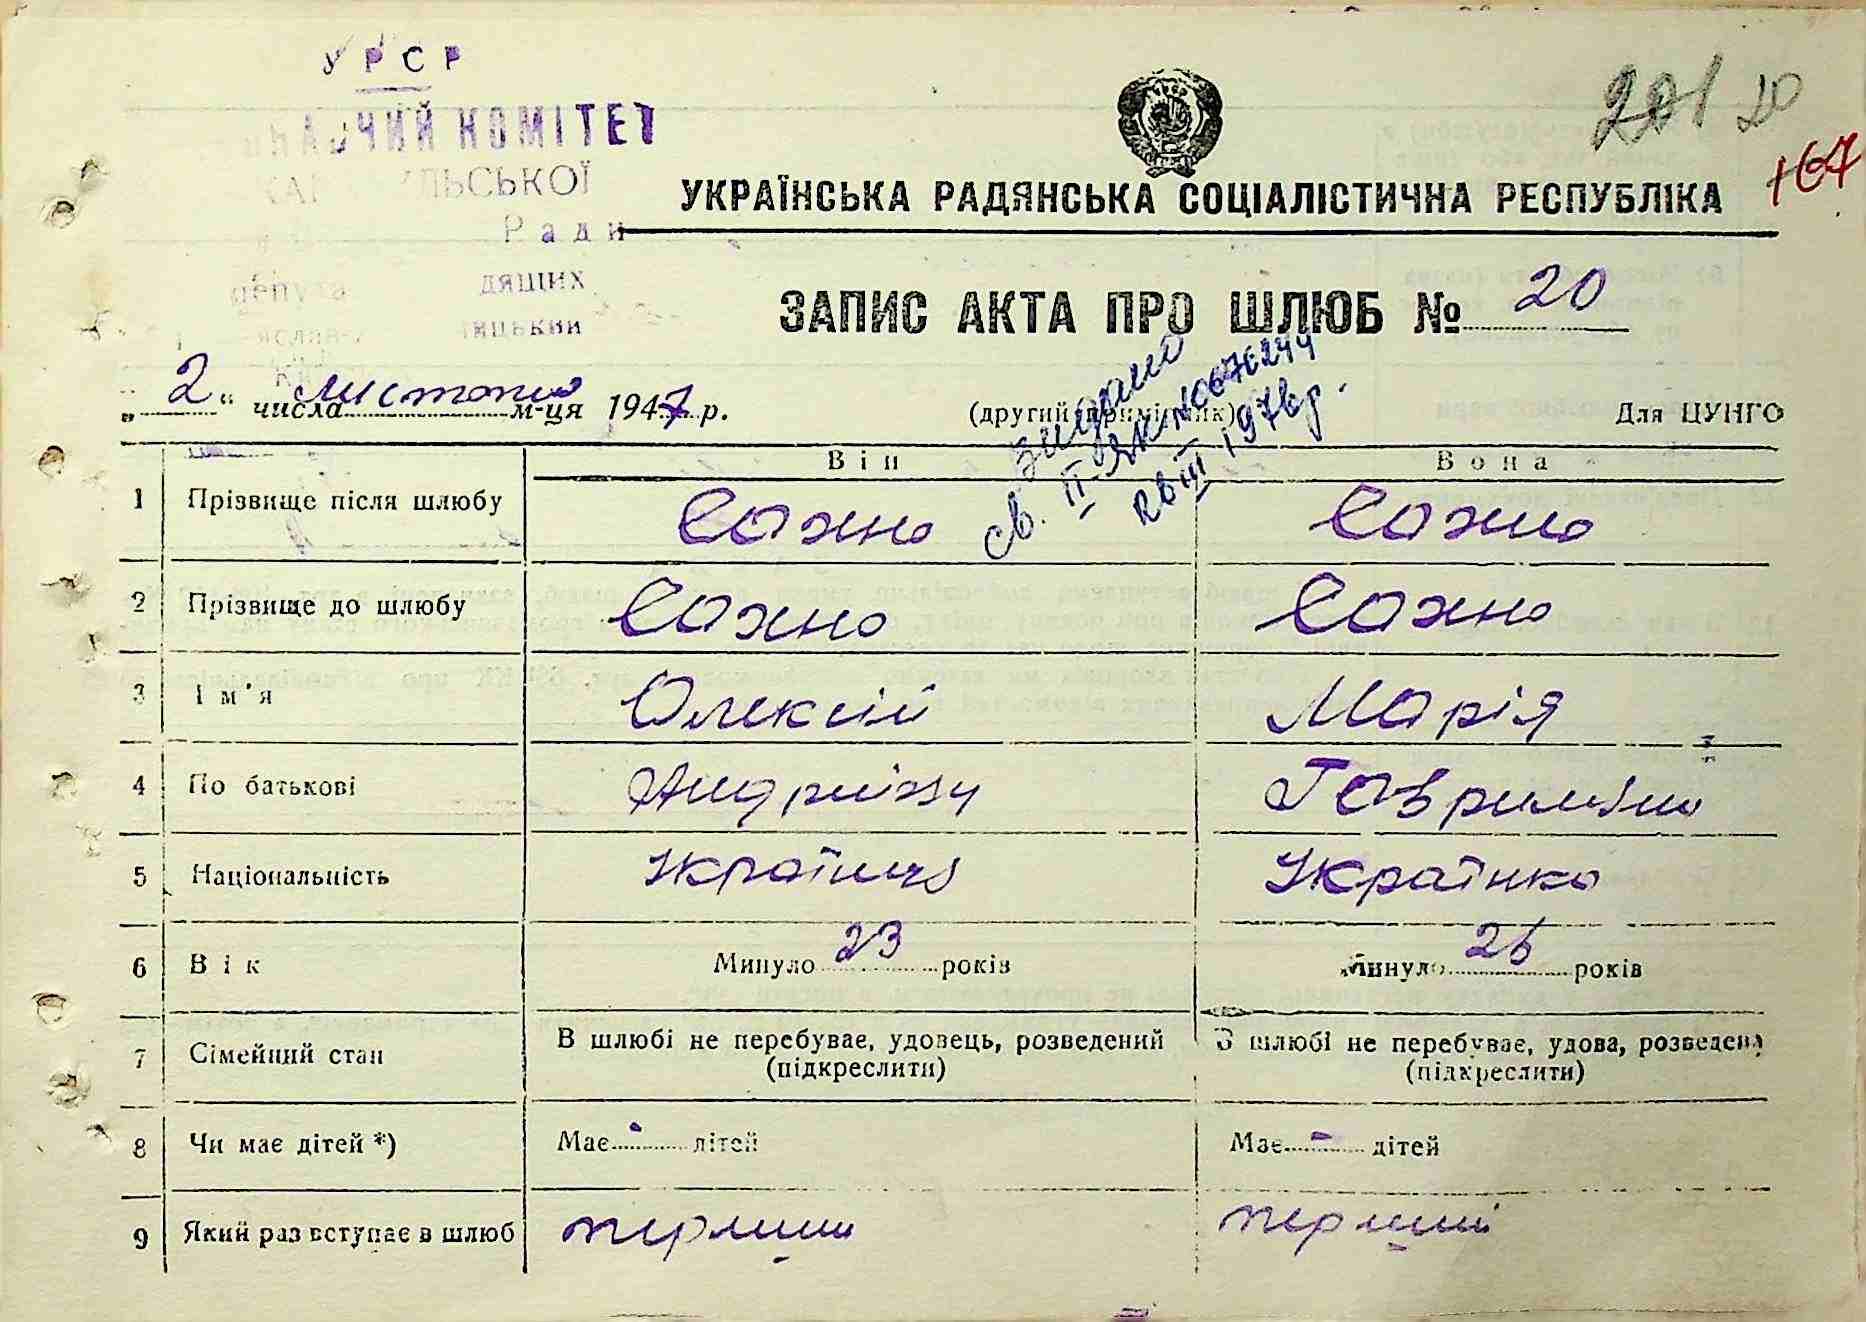 УРСР
КОМІТЕТ
Ради
201 20
167
УКРАЇНСЬКА РАДЯНСЬКА СОЦІАЛІСТИЧНА РЕСПУБЛІКА
ЗАПИС АКТА ПРО ШЛЮБ № 20
„2“ числа листопада м-ця 1947 р.
(другий примірник)
Для ЦУНГО
видано
св. II-ЯК №0676244
1976р.
Він Вона
1 Прізвище після шлюбу Сахно Сахно
2 Прізвище до шлюбу Сахно Сахно
3 Ім'я Олексій Марія
4 По батькові Андрійов Гаврилівна
5 Національність Українець Українка
6 Вік Минуло 23 років Минуло 26 років
7 Сімейний стан В шлюбі не перебуває, удовець, розведений В шлюбі не перебуває, удова, розведена
(підкреслити) (підкреслити)
8 Чи має дітей *) Має - дітей Має - дітей
9 Який раз вступає в шлюб перший перший